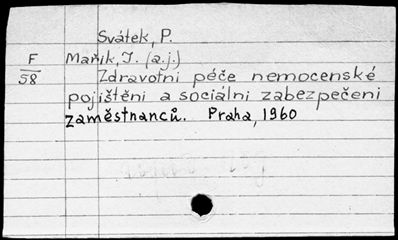 Svátek, P.
F Mařík, J. (a.j.)
58 Zdravotni péče nemocenské
pojištěni a sociálni zabezpečeni
zaměstnanců. Praha, 1960